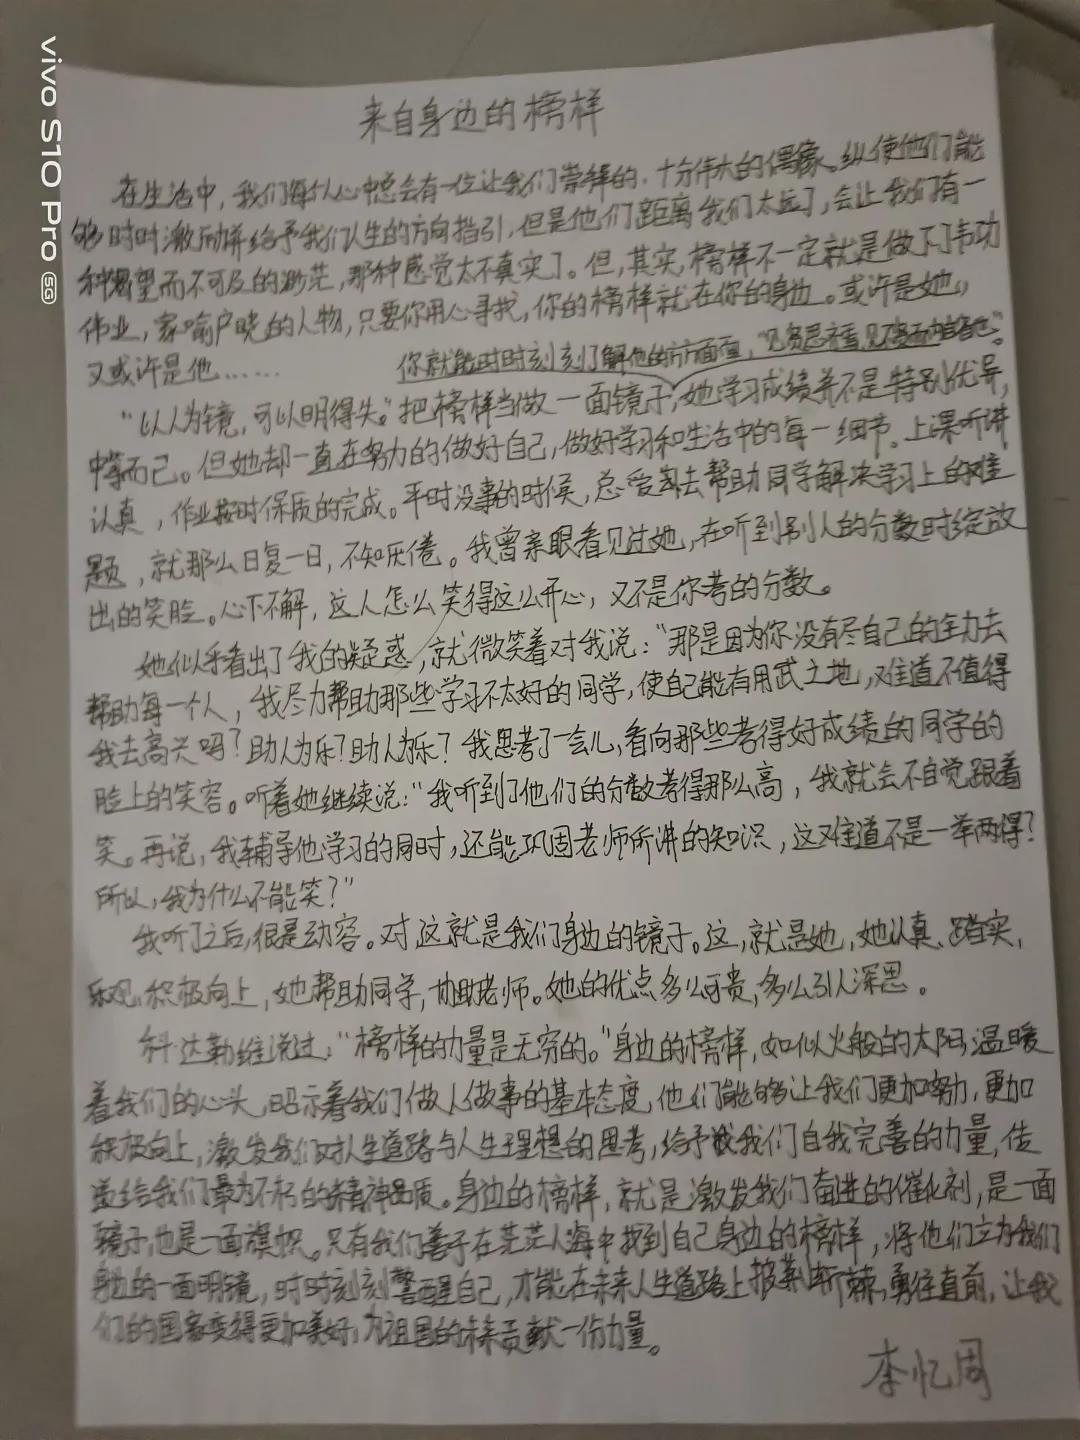 vivo S10 Pro 5G
来自身边的榜样
在生活中，我们每个人心中总会有一位让我们崇拜的、十分伟大的偶像。纵使他们能
够时时激励并给予我们人生的方向指引，但是他们距离我们太远了，会让我们有一
种渴望而不可及的渺茫，那种感觉太不真实了。但，其实，榜样不一定就是做下丰功
伟业，家喻户晓的人物，只要你用心寻找，你的榜样就在你的身边。或许是她，
又或许是他……
你就能时时刻刻了解他的方方面面，“见贤思齐焉，见不贤而内自省也”。
“以人为镜，可以明得失。”把榜样当做一面镜子，她学习成绩并不是特别优异，
中等而已。但她却一直在努力的做好自己，做好学习和生活中的每一细节。上课听讲
认真，作业按时保质的完成。平时没事的时候，总爱去帮助同学解决学习上的难
题，就那么日复一日，不知厌倦。我曾亲眼看见过她，在听到别人的分数时绽放
出的笑脸。心下不解，这人怎么笑得这么开心，又不是你考的分数。
她似乎看出了我的疑惑，就微笑着对我说：“那是因为你没有尽自己的全力去
帮助每一个人，我尽力帮助那些学习不太好的同学，使自己能有用武之地，难道不值得
我去高兴吗？助人为乐？助人为乐？我思考了一会儿，看向那些考得好成绩的同学的
脸上的笑容。听着她继续说：“我听到了他们的分数考得那么高，我就会不自觉跟着
笑。再说，我辅导他学习的同时，还能巩固老师所讲的知识，这难道不是一举两得？
所以，我为什么不能笑？”
我听了之后，很是动容。对这就是我们身边的镜子。这，就是她，她认真、踏实，
乐观，积极向上，她帮助同学，协助老师。她的优点多么可贵，多么引人深思。
科达勒维说过：“榜样的力量是无穷的。”身边的榜样，如似火般的太阳，温暖
着我们的心头，昭示着我们做人做事的基本态度，他们能够让我们更加努力，更加
积极向上，激发我们对人生道路与人生理想的思考，给予我们自我完善的力量，传
递给我们最为不朽的精神品质。身边的榜样，就是激发我们奋进的催化剂，是一面
镜子，也是一面旗帜。只有我们善于在茫茫人海中找到自己身边的榜样，将他们立为我们
身边的一面明镜，时时刻刻警醒自己，才能在未来人生道路上披荆斩棘，勇往直前，让我
们的国家变得更加美好，为祖国的未来贡献一份力量。
李忆周